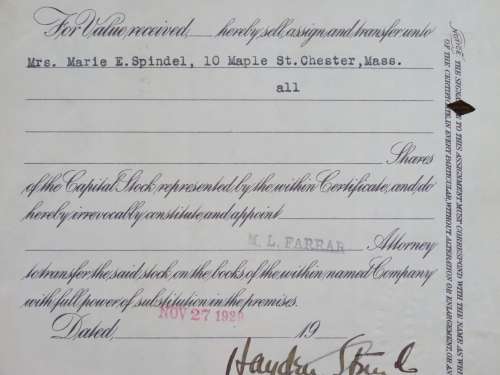 For Value received, hereby sell, assign and transfer unto
Mrs. Marie E. Spindel, 10 Maple St. Chester, Mass.
all
Shares
of the Capital Stock represented by the within Certificate, and do
hereby irrevocably constitute and appoint
M. L. FARRAR Attorney
to transfer the said stock on the books of the within named Company
with full power of substitution in the premises.
NOV 27 1929
Dated, 19
NOTICE THE SIGNATURE TO THIS ASSIGNMENT MUST CORRESPOND WITH THE NAME AS
OF THE CERTIFICATE, IN EVERY PARTICULAR, WITHOUT ALTERATION OR ENLARGEMENT, OR